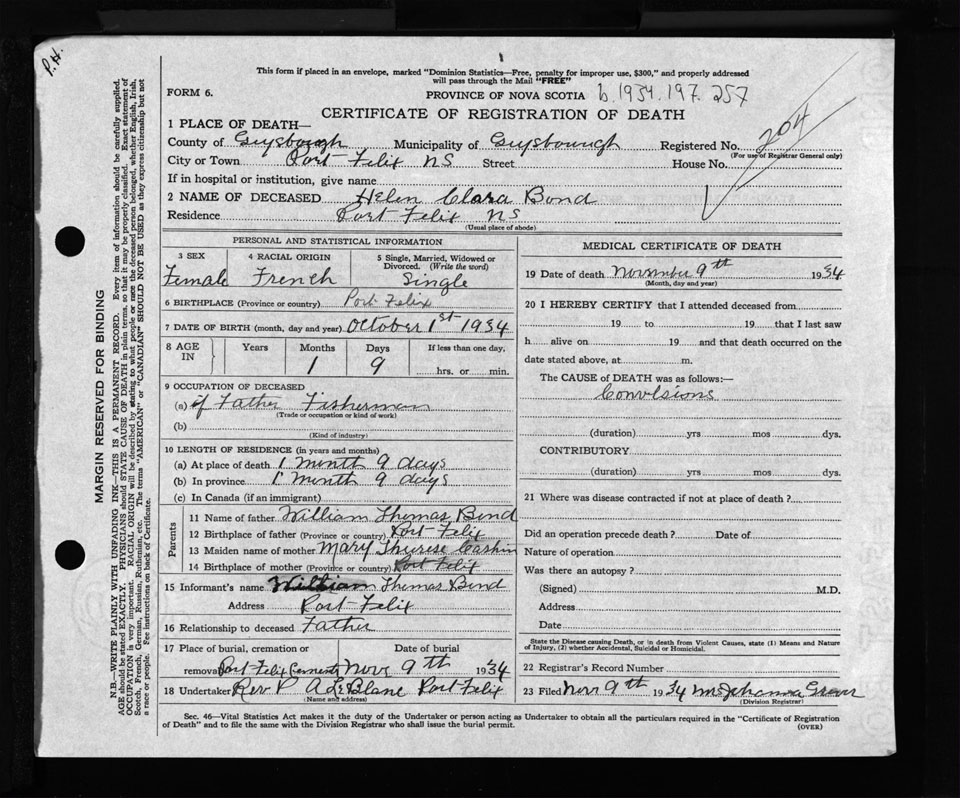 P.H.
This form if placed in an envelope, marked "Dominion Statistics—Free, penalty for improper use, $300," and properly addressed
will pass through the Mail "FREE"
FORM 6.
PROVINCE OF NOVA SCOTIA b.1934.197.257
CERTIFICATE OF REGISTRATION OF DEATH
204
1 PLACE OF DEATH—
County of Guysbourgh Municipality of Guysbourugh Registered No.
(For use of Registrar General only)
City or Town Port Felix NS Street House No.
If in hospital or institution, give name
2 NAME OF DECEASED Helen Clara Bond
Residence Port Felix NS
(Usual place of abode)
PERSONAL AND STATISTICAL INFORMATION
3 SEX Female
4 RACIAL ORIGIN French
5 Single, Married, Widowed or Divorced. (Write the word) Single
6 BIRTHPLACE (Province or country) Port Felix
7 DATE OF BIRTH (month, day and year) October 1st 1934
8 AGE IN Years Months Days If less than one day,
1 9 hrs. or min.
9 OCCUPATION OF DECEASED
(a) of Father Fisherman
(Trade or occupation or kind of work)
(b)
(Kind of industry)
10 LENGTH OF RESIDENCE (in years and months)
(a) At place of death 1 month 9 days
(b) In province 1 month 9 days
(c) In Canada (if an immigrant)
Parents
11 Name of father William Thomas Bond
12 Birthplace of father (Province or country) Port Felix
13 Maiden name of mother Mary Therese Cashin
14 Birthplace of mother (Province or country) Port Felix
15 Informant's name William Thomas Bond
Address Port Felix
16 Relationship to deceased Father
17 Place of burial, cremation or Date of burial
removal Port Felix Nov 9th 1934
18 Undertaker Rev P A LeBlanc Port Felix
(Name and address)
MEDICAL CERTIFICATE OF DEATH
19 Date of death November 9th 1934
(Month, day and year)
20 I HEREBY CERTIFY that I attended deceased from
19 to 19 that I last saw
h alive on 19 and that death occurred on the
date stated above, at m.
The CAUSE of DEATH was as follows:—
Convlsions
(duration) yrs mos dys.
CONTRIBUTORY
(duration) yrs mos dys.
21 Where was disease contracted if not at place of death ?
Did an operation precede death ? Date of
Nature of operation
Was there an autopsy ?
(Signed) M.D.
Address
Date
State the Disease causing Death, or in death from Violent Causes, state (1) Means and Nature of
Injury, (2) whether Accidental, Suicidal or Homicidal.
22 Registrar's Record Number
23 Filed Nov 9th 1934 Mrs Johanna
(Division Registrar)
Sec. 46—Vital Statistics Act makes it the duty of the Undertaker or person acting as Undertaker to obtain all the particulars required in the "Certificate of Registration
of Death" and to file the same with the Division Registrar who shall issue the burial permit.
(OVER)
MARGIN RESERVED FOR BINDING
N.B.—WRITE PLAINLY WITH UNFADING INK—THIS IS A PERMANENT RECORD. Every item of information should be carefully supplied.
AGE should be stated EXACTLY. PHYSICIANS should STATE CAUSE OF DEATH in plain terms, so that it may be properly classified. Exact statement of
OCCUPATION is very important. RACIAL ORIGIN will be described by stating to what people or race the deceased person belonged, whether English, Irish,
Scotch, French, German, Russian, Ruthenian, etc. The terms "AMERICAN" or "CANADIAN" SHOULD NOT BE USED as they express citizenship but not
a race or people. Fee instructions on back of Certificate.